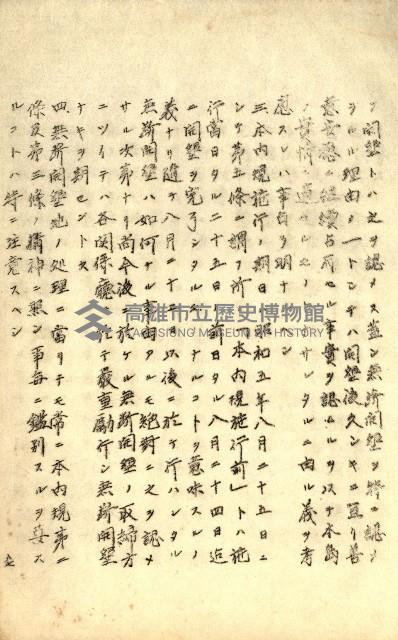 ノ開墾トハ之ヲ認メス蓋シ無斷開墾ヲ特ニ認メ
ラルル理由ノ一トシテハ開墾後久シキニ亘リ善
意安穩ニ繼續占有セル事實ヲ認メ
ノ實情ニ適セシメ サルニ由ル義ヲ考
慮スレハ事自ラ明ナラン
三、本內規施行ノ期日ハ昭和五年八月二十五日ニ
シテ第五條ニ謂フ所ノ「本內規施行前」トハ施
行當日タル二十五日ノ前日タル八月二十四日迄
ニ開墾ヲ完了シタルモノナルコトヲ意味スルノ
義ナリ隨テ八月二十五日以後ニ於テ行ハレタル
無斷開墾ハ如何ナル事由アルモ絕對ニ之ヲ認メ
サル次第ナリ尚今後ニ於ケル無斷開墾ノ取締方
ニツイテハ各關係廳ニ於テ嚴重勵行シ無斷開墾
ナキヲ期セントス
四、無斷開墾地ノ処理ニ當リテモ常ニ本內規第二
條及第三條ノ精神ニ照シ事每ニ鑑別スルヲ要ス
ルコトハ特ニ注意スヘシ
五
高雄市立歷史博物館
KAOHSIUNG MUSEUM OF HISTORY